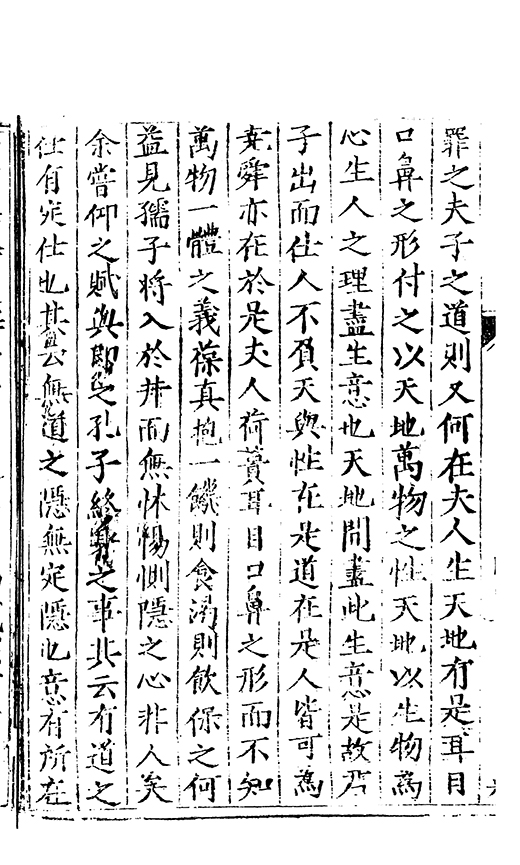 罪之夫子之道則又何在夫人生天地有是耳目
口鼻之形付之以天地萬物之性天地以生物為
心生人之理盡生意也天地間盡此生意是故君
子出而仕人不負天與性在是道在是人皆可為
堯舜亦在於是夫人荷蕢耳目口鼻之形而不知
萬物一體之義葆真抱一饑則食渴則飲保之何
益見孺子將入於井而無怵惕惻隱之心非人矣
余嘗仰之賦與即之孔子終之事其云有道之
仕有定仕也其云無道之隱無定隱也意有所在